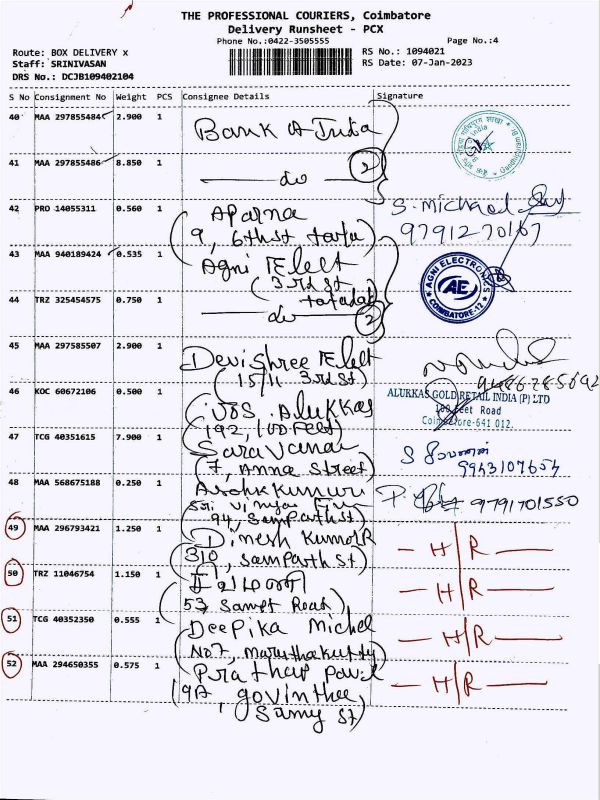 THE PROFESSIONAL COURIERS, Coimbatore
Delivery Runsheet - PCX
Phone No.:0422-3505555
Page No.:4
Route: BOX DELIVERY x
RS No.: 1094021
Staff: SRINIVASAN
RS Date: 07-Jan-2023
DRS No.: DCJB109402104
S No Consignment No Weight PCS Consignee Details Signature
40 MAA 297855484 2.900 1 Bank of
41 MAA 297855486 8.850 1 do 2
42 PRO 14055311 0.560 1 Aparna S. Michael
(9, 6th st tata) 9791270167
43 MAA 940189424 0.535 1 Agni Elect
(3rd st AGNI ELECTRONICS
AE
COIMBATORE-12
44 TRZ 325454575 0.750 1 do 2
45 MAA 297585507 2.900 1 Devi Shree Elect
(15/11 3rd st)
46 KOC 60672106 0.500 1 (Jos Alukkas ALUKKAS GOLD RETAIL INDIA (P) LTD
(192, 100 Feet) 100 Feet Road
Coimbatore-641 012.
47 TCG 40351615 7.900 1 Saravanan
(7, Anna Street) 9943107654
48 MAA 568675188 0.250 1 Ashok Kumar 9791701550
94, Sampath st)
49 MAA 296793421 1.250 1 Dinesh Kumar R H/R
(310, Samparth st)
50 TRZ 11046754 1.150 1 H/R
(53 Sampt Road)
51 TCG 40352350 0.555 1 Deepika Michel H/R
(No7, Maruthakutty)
52 MAA 294650355 0.575 1 Prathap Paul H/R
(9A, Govinthu
Samy st)